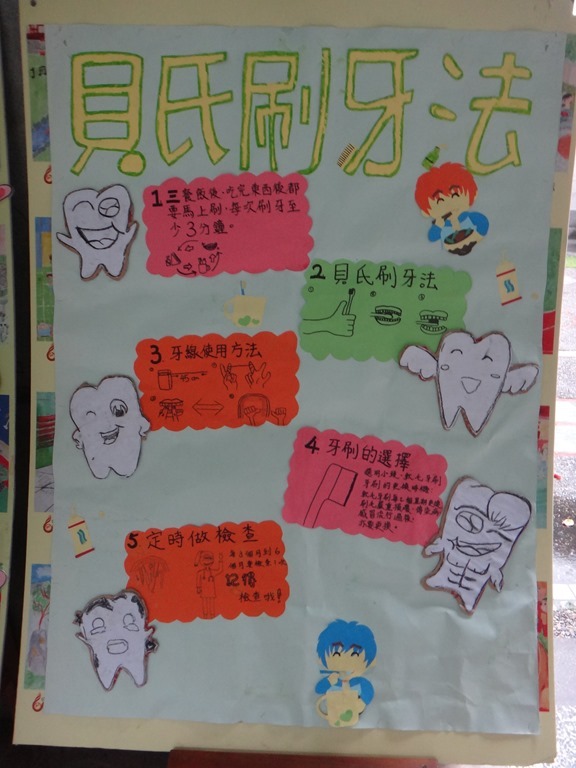 貝氏刷牙法
1 三餐飯後、吃完東西後都
要馬上刷,每次刷牙至
少3分鐘。
2 貝氏刷牙法
3 牙線使用方法
4 牙刷的選擇
選用小頭、軟毛牙刷
牙刷的更換時機
5 定時做檢查
每3個月到6
個月要檢查1次
記得
檢查哦!